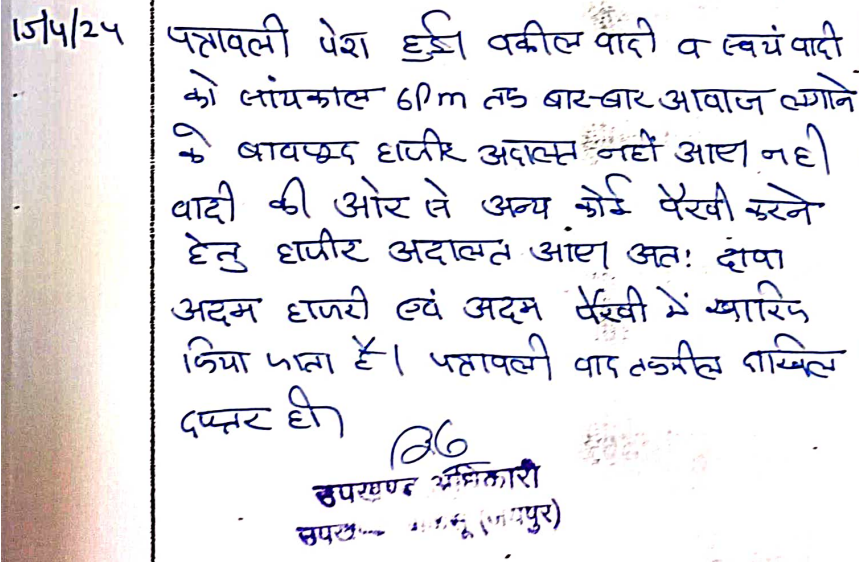 15/4/24
पत्रावली पेश हुई। वकील वादी व स्वयं वादी
को सांयकाल 6Pm तक बार-बार आवाज लगाने
के बावजूद हाजीर अदालत नहीं आए। नही
वादी की ओर से अन्य कोई पैरवी करने
हेतु हाजीर अदालत आए। अतः दावा
अदम हाजरी एवं अदम पैरवी में खारिज
किया जाता है। पत्रावली बाद तकमील दाखिल
दफ्तर हो।
उपखण्ड अधिकारी
(जयपुर)